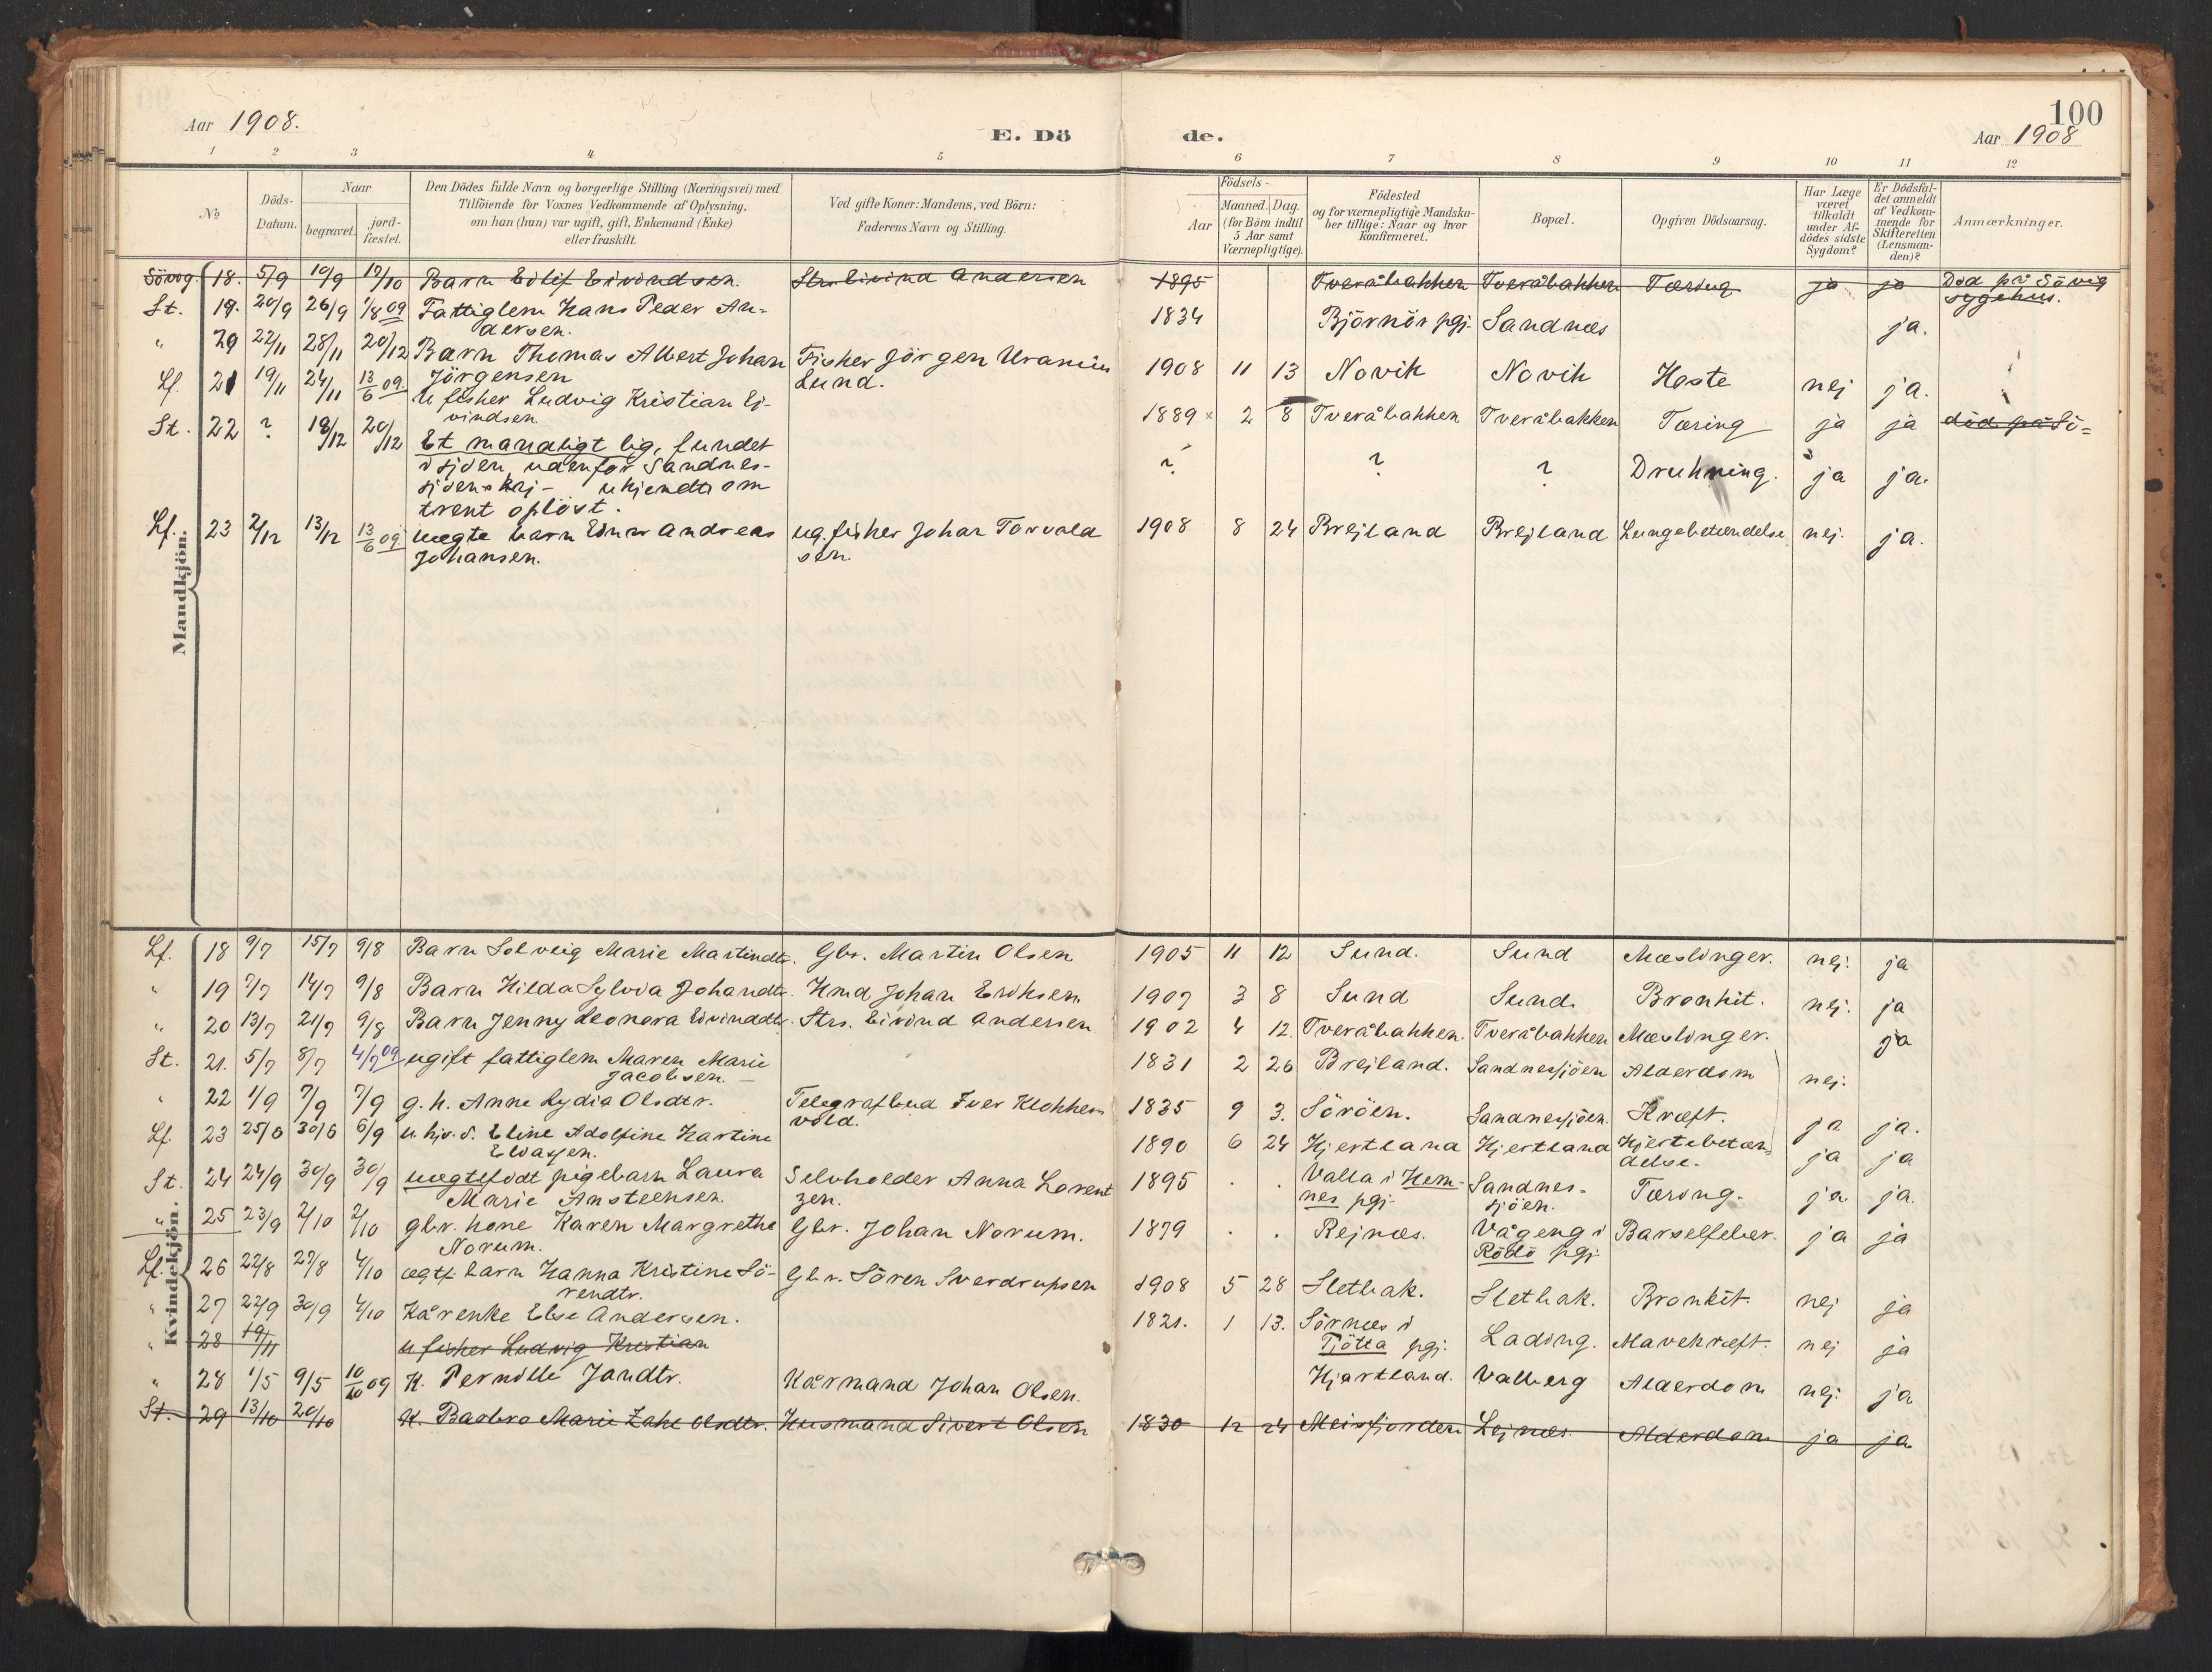 100
Aar 1908.
E. Dö de.
Aar 1908
1 2 3 4 5 6 7 8 9 10 11 12
No
Döds-Datum.
Naar
begravet.
jord-fæstet.
Den Dödes fulde Navn og borgerlige Stilling (Næringsvei) med
Tilföiende for Voxnes Vedkommende af Oplysning.
om han (hun) var ugift, gift, Enkemand (Enke)
eller fraskilt.
Ved gifte Koner: Mandens, ved Börn:
Faderens Navn og Stilling.
Födsels-
Aar
Maaned. Dag.
(for Börn indtil
5 Aar samt
Værnepligtige).
Födested
og for værnepligtige Mandska-
ber tillige: Naar og hvor
konfirmeret.
Bopæl.
Opgiven Dödsaarsag.
Har Læge
været
tilkaldt
under Af-
dödes sidste
Sygdom?
Er Dödsfal-
det anmeldt
af Vedkom-
mende for
Skifteretten
(Lensman-
den)?
Anmærkninger.
Mandkjön.
Sövog 18. 5/9 10/9 19/10 Barn Eilif Eivindsen. Strs. Eivind Andersen 1895 Tveråbakken Tveråbakken Tæring ja ja Död på Sövig
sygehus.
St. 19. 20/9 26/9 1/8 09 Fattiglem Hans Peder An-
dersen. 1834 Björnör pgj. Sandnæs ja.
" 20 22/11 28/11 20/12 Barn Thomas Albert Johan
Jörgensen Fisker Jörgen Uranius
Lund. 1908 11 13 Novik Novik Hoste nej ja.
Lf. 21 19/11 24/11 13/6 09. U fisker Ludvig Kristian Ej-
vindsen 1889 2 8 Tveråbakken Tveråbakken Tæring ja ja död på Sö=
St. 22 ? 18/12 20/12 Et mandligt lig, fundet
i sjöen, udenfor Sandnes-
sjöens kaj - ukjendt om
trent oplöst. ? ? ? Drukning. ja ja.
Lf. 23 2/12 13/12 13/6 09 uægte barn Einar Andreas
Johansen. ug. fisker Johan Torvald
sen. 1908 8 24 Brejland Brejland Lungebetændelse nej. ja.
Kvindekjön.
Lf. 18 9/7 15/7 9/8 Barn Solveig Marie Martindtr. Gbr. Martin Olsen 1905 11 12 Sund. Sund Mæslinger. nej. ja
" 19 7/7 14/7 9/8 Barn Hilda Sylvia Johandtr. Hmd Johan Eriksen 1907 3 8 Sund Sund. Bronkit. nej. ja
" 20 13/7 21/7 9/8 Barn Jenny Leonora Eivinddtr. Strs. Eivind Andersen 1902 4 12. Tveråbakken. Tveråbakken Mæslinger. ja
St. 21. 5/7 8/7 4/7 09 ugift fattiglem Maren Marie
Jacobsen. 1831 2 26 Brejland. Sandnessjöen Alderdom nej.
" 22 1/9 7/9 7/9 g. k. Anne Lydia Olsdtr. Telegrafbud Iver Klokker
vold. 1835 9 3. Söröen. Sandnessjöen. Kræft. ja ja.
Lf. 23 25/6 30/6 6/9 u. hjv. d. Eline Adolfine Hartine
Eliasen. 1890 6 24 Hjertland Hjertland Hjertebetæn
delse. ja ja
St. 24 24/9 30/9 30/9 uægtefödt pigebarn Laura
Marie Amsteensen. Selvholder Anna Lorent
zen. 1895 . . Valla i Hem-
nes pgj. Sandnes-
sjöen. Tæring. ja ja.
" 25 23/9 2/10 2/10 gbr. kone Karen Margrethe
Norum. Gbr. Johan Norum. 1879 . . Rejnæs. Vågeng i
Rödö pgj. Barselfeber. ja ja
Lf. 26 22/8 27/8 4/10 ægtf. barn Hanna Kristine Sö-
rendtr. Gbr. Sören Sverdrupsen 1908 5 28 Sletbak. Sletbak. Bronkit nej ja
" 27 22/9 30/9 4/10 Kårenke Else Andersen. 1821. 1 13. Sörnæs i
Tjötta pgj. Lading. Mavekræft. nej ja
" 28 19/11 u fisker Ludvig Kristian
" 28 1/5 9/5 10/10 09 K. Pernille Jondtr. Kårmand Johan Olsen. Hjartland. Valberg Alderdom nej. ja
St. 29 13/10 20/10 K. Barbro Marie Zahl Olsdtr. Husmand Sivert Olsen 1830 12 24 Meisfjorden Lejnæs Alderdom ja ja.